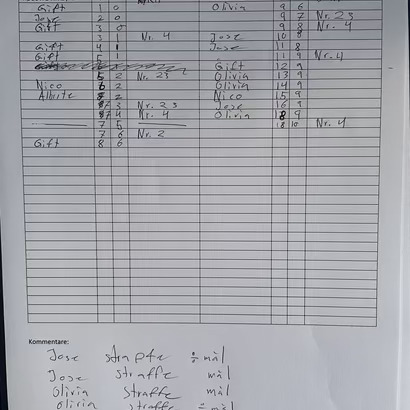 Gift 1 0 Olivia 9 6
Jose 2 0 9 7 Nr. 23
Gift 3 0 9 8 Nr. 4
3 1 Nr. 4 Jose 10 8
Gift 4 1 Jose 11 8
Gift 5 1 11 9 Nr. 4
Gift 12 9
5 2 Nr. 23 Olivia 13 9
Nico 6 2 Olivia 14 9
2 Nico 15 9
7 3 Nr. 23 Jose 16 9
7 4 Nr. 4 Olivia 18 9
7 5 18 10 Nr. 4
7 6 Nr. 2
Gift 8 6
Kommentare:
Jose straffe ÷ mål
Jose straffe mål
Olivia straffe mål
Olivia straffe ÷ mål